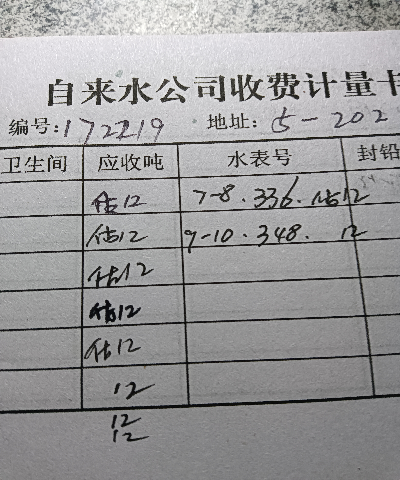 自来水公司收费计量卡
编号:172219 地址:5-202
卫生间 应收吨 水表号 封铅
估12 7-8.336.估12
估12 9-10.348. 12
估12
估12
估12
12
12
12